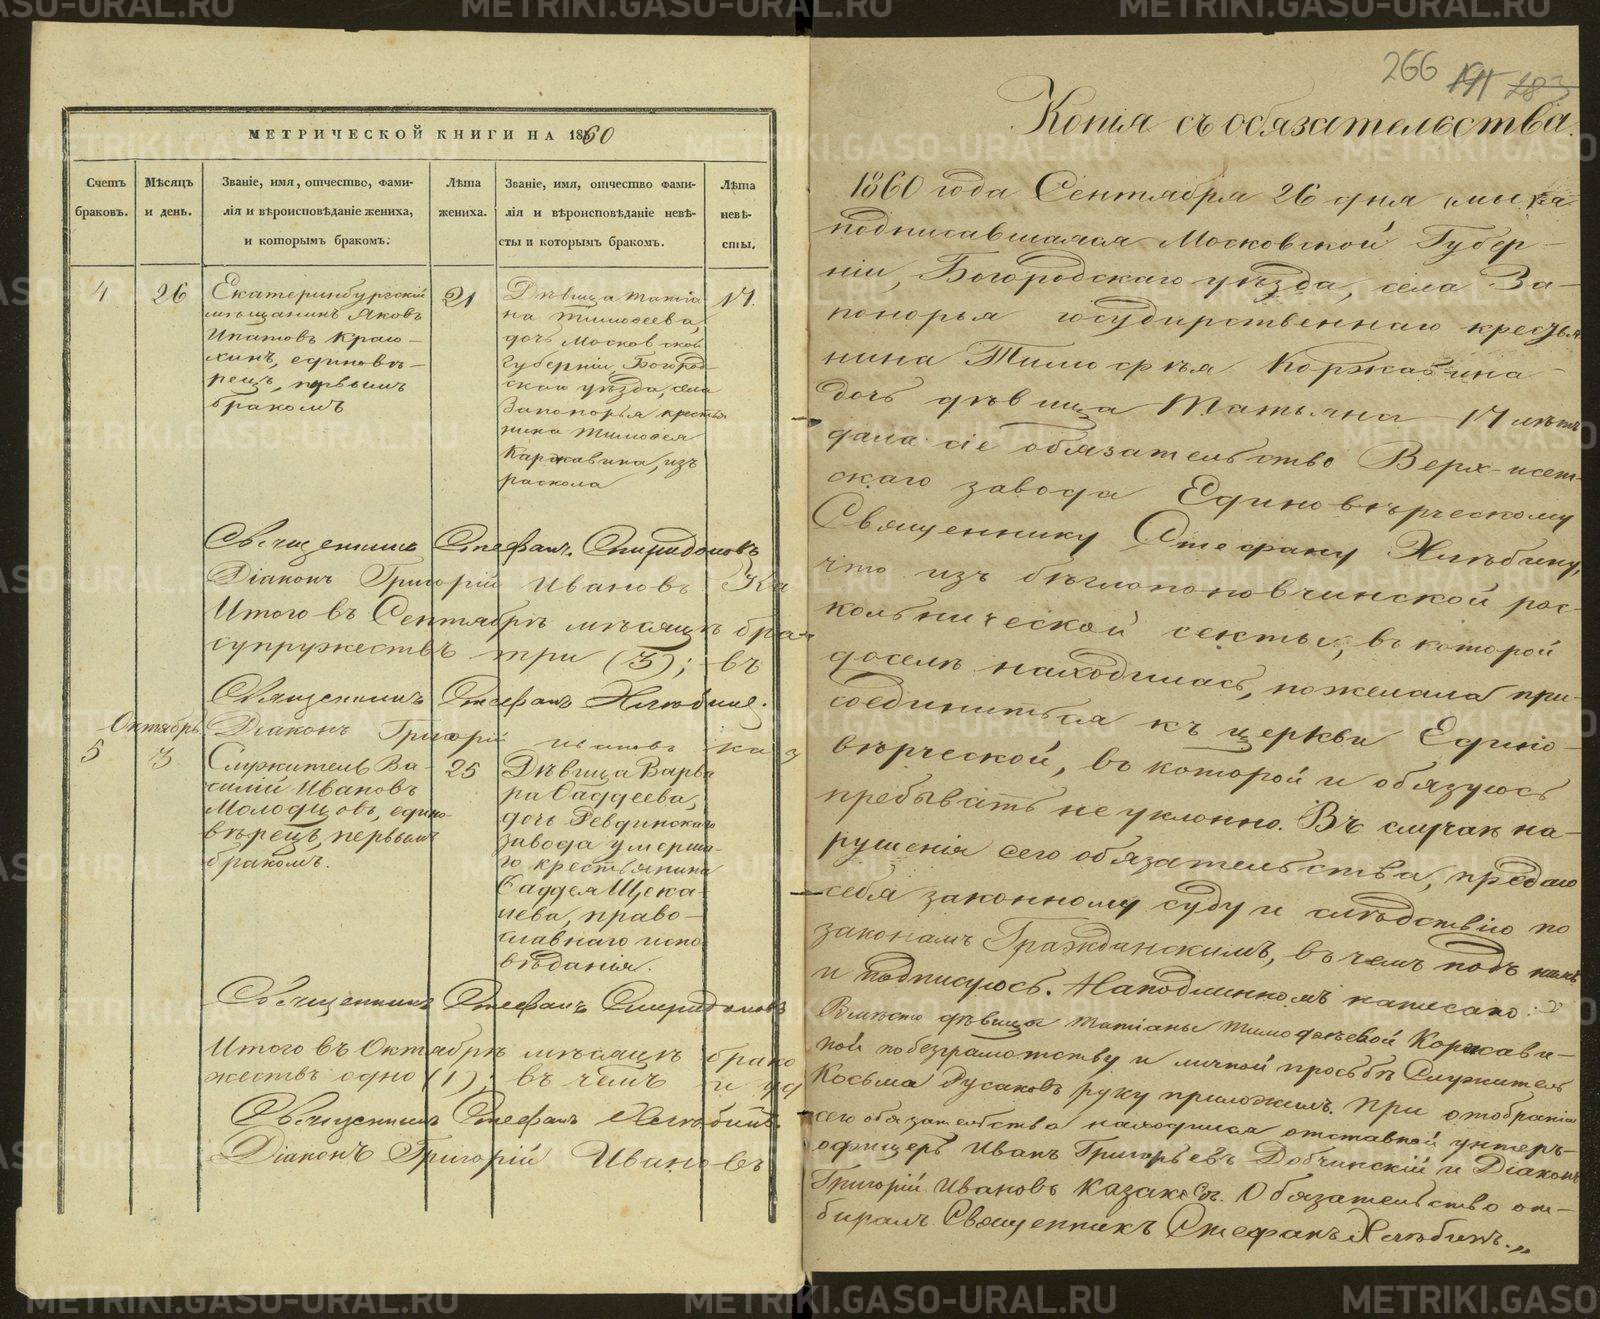 МЕТРИЧЕСКОЙ КНИГИ НА 1860
Счетъ браковъ.
Мѣсяцъ и день.
Званіе, имя, отчество, фами-
лія и вѣроисповѣданіе жениха,
и которымъ бракомъ.
Лѣта жениха.
Званіе, имя, отчество фами-
лія и вѣроисповѣданіе невѣ-
сты и которымъ бракомъ.
Лѣта невѣ-
сты.
4
26
Екатеринбургскій
мѣщанинъ Яковъ
Ипатовъ Краю-
хинъ, единовѣ-
рецъ, первымъ
бракомъ
21
Дѣвица Татiа
на Тимоѳеева,
дочь Московской
Губерніи, Богород-
скаго уѣзда, села
Запонорья крестья
нина Тимоѳея
Каржавина, изъ
раскола
17.
Священникъ Стефанъ Спиридоновъ
Діаконъ Григорій Ивановъ Ка
Итого въ Сентябрѣ мѣсяцѣ брач
супружествъ три (3); въ
Священникъ Стефанъ Хлѣбинъ.
Діаконъ Григорій Ивановъ Каз
Октябрь
5
3
Служитель Ва-
силій Ивановъ
Молодцовъ, едино-
вѣрецъ, первымъ
бракомъ.
25
Дѣвица Варва
ра Ѳаддеева,
дочь Ревдинскаго
завода умерша-
го крестьянина
Ѳаддея Щека-
лева, право-
славнаго испо
вѣданія.
Священникъ Стефанъ Спиридоновъ
Итого въ Октябрѣ мѣсяцѣ брако
жествъ одно (1); въ чемъ и уд
Священникъ Стефанъ Хлѣбинъ
Діаконъ Григорій Ивановъ
266 191 283
Копія съ обязательства.
1860 года Сентября 26 дня мы ка
подписавшаяся Московской Губер-
ніи, Богородскаго уѣзда, села За-
понорья государственнаго крестья
нина Тимофѣя Коржавина
дочь дѣвица Татьяна 17 лѣтъ
дала сіе обязательство Верх-исет-
скаго завода Единовѣрческому
Священнику Стефану Хлѣбину,
что изъ бѣглопоповчинской рас-
кольнической секты, въ которой
доселѣ находилась, пожелала при-
соединиться къ церкви Едино-
вѣрческой, въ которой и обязуюсь
пребывать не уклонно. Въ случаѣ на-
рушенія сего обязательства, предаю
себя законному суду и слѣдствію по
законамъ Гражданскимъ, въ чемъ
и подписуюсь. На подлинномъ написано:
Вмѣсто дѣвицы Татіаны Тимофѣевой Коржави-
ной по безграмотству и личной просьбѣ Служитель
Косьма Дусаковъ руку приложилъ. При отобраніи
сего обязательства находился отставной унтеръ-
офицеръ Иванъ Григорьевъ Добчинскій и Діаконъ
Григорій Ивановъ Казанс. Обязательство от-
биралъ Священникъ Стефанъ Хлѣбинъ."
METRIKI.GASO-URAL.RU